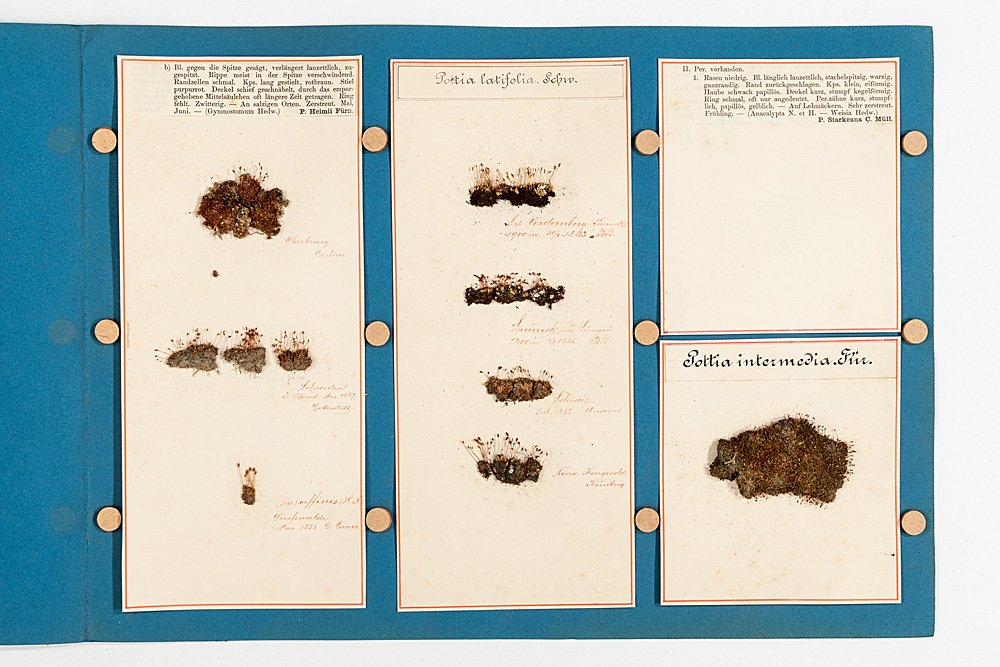 b) Bl. gegen die Spitze gesägt, verlängert lanzettlich, zu-
gespitzt. Rippe meist in der Spitze verschwindend.
Randzellen schmal. Kps. lang gestielt, rotbraun. Stiel
purpurrot. Deckel schief geschnäbelt, durch das empor-
gehobene Mittelsäulchen oft längere Zeit getragen. Ring
fehlt. Zwitterig. — An salzigen Orten. Zerstreut. Mai,
Juni. — (Gymnostomum Hedw.) P. Heimii Fürn.
Cherbourg
Schweden
Mai
Zetterstedt
affinis
Greifswalde
Mai
Pottia latifolia. Schw.
Schweiz
Norw. Kongsvold
II. Per. vorhanden.
1. Rasen niedrig. Bl. länglich lanzettlich, stachelspitzig, warzig,
ganzrandig. Rand zurückgeschlagen. Kps. klein, eiförmig.
Haube schwach papillös. Deckel kurz, stumpf kegelförmig.
Ring schmal, oft nur angedeutet. Per.zähne kurz, stumpf-
lich, papillös, gelblich. — Auf Lehmäckern. Sehr zerstreut.
Frühling. — (Anacalypta N. et H. — Weisia Hedw.)
P. Starkeana C. Müll.
Pottia intermedia. Für.